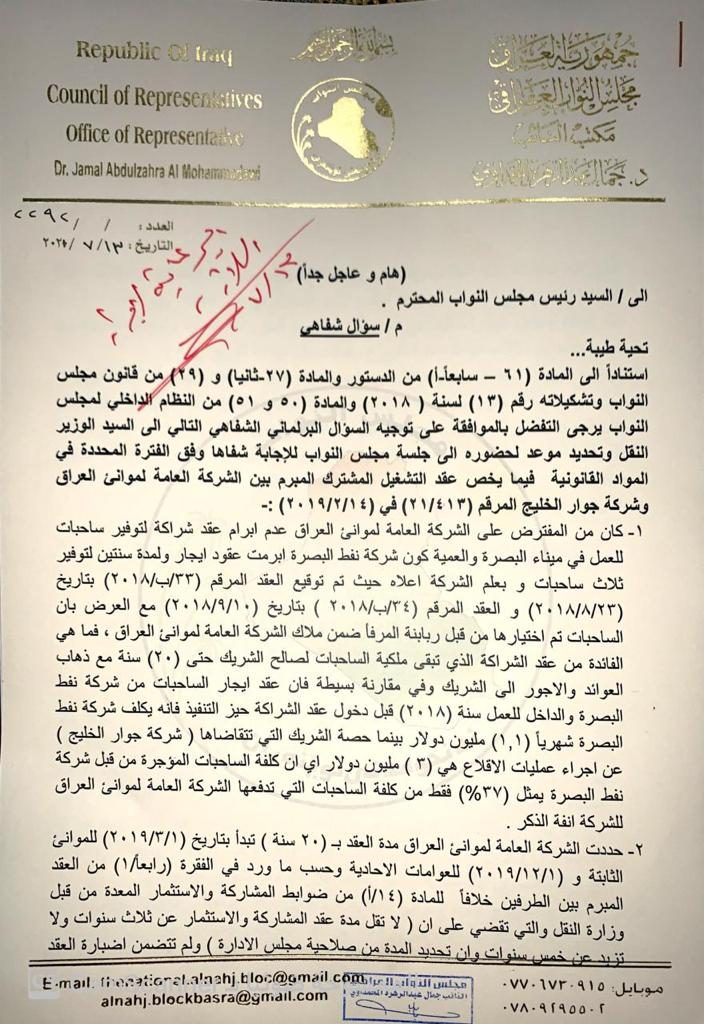 بسم الله الرحمن الرحيم
Republic Of Iraq
Council of Representatives
Office of Representative
Dr. Jamal Abdulzahra Al Mohammadawi
جمهورية العراق
مجلس النواب العراقي
مكتب النائب
د. جمال عبد الزهرة المحمداوي
العدد: / / ٢٢٩٢
التاريخ: ١٣/ ٧ /
(هام و عاجل جداً)
الى / السيد رئيس مجلس النواب المحترم .
م / سؤال شفاهي
تحية طيبة...
استناداً الى المادة (٦١ – سابعاً-أ) من الدستور والمادة (٢٧-ثانيا) و (٢٩) من قانون مجلس
النواب وتشكيلاته رقم (١٣) لسنة ( ٢٠١٨) والمادة (٥٠ و ٥١) من النظام الداخلي لمجلس
النواب يرجى التفضل بالموافقة على توجيه السؤال البرلماني الشفاهي التالي الى السيد الوزير
النقل وتحديد موعد لحضوره الى جلسة مجلس النواب للإجابة شفاها وفق الفترة المحددة في
المواد القانونية فيما يخص عقد التشغيل المشترك المبرم بين الشركة العامة لموانئ العراق
وشركة جوار الخليج المرقم (٢١/٤١٣) في (٢٠١٩/٢/١٤) :-
١- كان من المفترض على الشركة العامة لموانئ العراق عدم ابرام عقد شراكة لتوفير ساحبات
للعمل في ميناء البصرة والعمية كون شركة نفط البصرة ابرمت عقود ايجار ولمدة سنتين لتوفير
ثلاث ساحبات و بعلم الشركة اعلاه حيث تم توقيع العقد المرقم (٣٣/ب/٢٠١٨) بتاريخ
(٢٠١٨/٨/٢٣) و العقد المرقم (٣٤/ب/٢٠١٨ ) بتاريخ (٢٠١٨/٩/١٠) مع العرض بان
الساحبات تم اختيارها من قبل ربابنة المرفأ ضمن ملاك الشركة العامة لموانئ العراق ، فما هي
الفائدة من عقد الشراكة الذي تبقى ملكية الساحبات لصالح الشريك حتى (٢٠) سنة مع ذهاب
العوائد والاجور الى الشريك وفي مقارنة بسيطة فان عقد ايجار الساحبات من شركة نفط
البصرة والداخل للعمل سنة (٢٠١٨) قبل دخول عقد الشراكة حيز التنفيذ فانه يكلف شركة نفط
البصرة شهرياً (١,١) مليون دولار بينما حصة الشريك التي تتقاضاها ( شركة جوار الخليج )
عن اجراء عمليات الاقلاع هي (٣ ) مليون دولار اي ان كلفة الساحبات المؤجرة من قبل شركة
نفط البصرة يمثل (٣٧%) فقط من كلفة الساحبات التي تدفعها الشركة العامة لموانئ العراق
للشركة انفة الذكر .
٢- حددت الشركة العامة لموانئ العراق مدة العقد بـ (٢٠ سنة ) تبدأ بتاريخ (٢٠١٩/٣/١) للموانئ
الثابتة و (٢٠١٩/١٢/١) للعوامات الاحادية وحسب ما ورد في الفقرة (رابعاً/١) من العقد
المبرم بين الطرفين خلافاً للمادة (١٤/أ) من ضوابط المشاركة والاستثمار المعدة من قبل
وزارة النقل والتي تقضي على ان ( لا تقل مدة عقد المشاركة والاستثمار عن ثلاث سنوات ولا
تزيد عن خمس سنوات وان تحديد المدة من صلاحية مجلس الادارة ) ولم تتضمن اضبارة العقد
E-mail: alnahj.bloc@gmail.com
alnahj.blockbasra@gmail.com
مجلس النواب العراقي
النائب جمال عبدالزهرة المحمداوي
موبايل: ٠٧٧٠٦٧٣٠٩١٥
٠٧٨٠٩٢٩٥٥٠٢